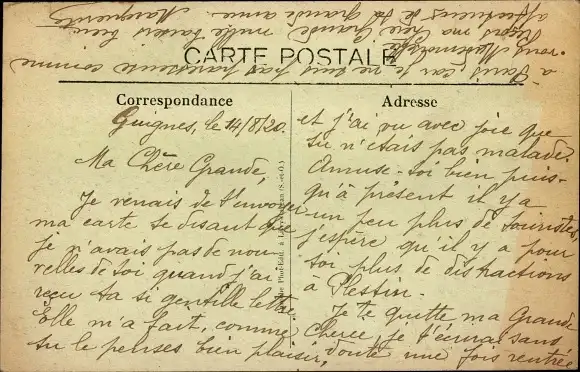 CARTE POSTALE
Correspondance
Guignes, le 14/8/20.
Ma Chère Grande,
Je venais de t'envoyer
ma carte te disant que
je n'avais pas de nou-
velles de toi quand j'ai
reçu ta si gentille lettre.
Elle m'a fait, comme
tu le penses bien plaisir,
Adresse
et j'ai vu avec joie que
tu n'étais pas malade.
Amuse-toi bien puis-
qu'à présent il y a
un peu plus de touristes
j'espère qu'il y a pour
toi plus de distractions
à Plestin.
Je te quitte ma Grande
Chérie, je t'écrirai sans
doute une fois rentrée
à Paris car je ne suis pas paresseuse comme
vous Mademoiselle
ma Chère Grande mille baisers bien
affectueux de ta grande amie
Marguerite